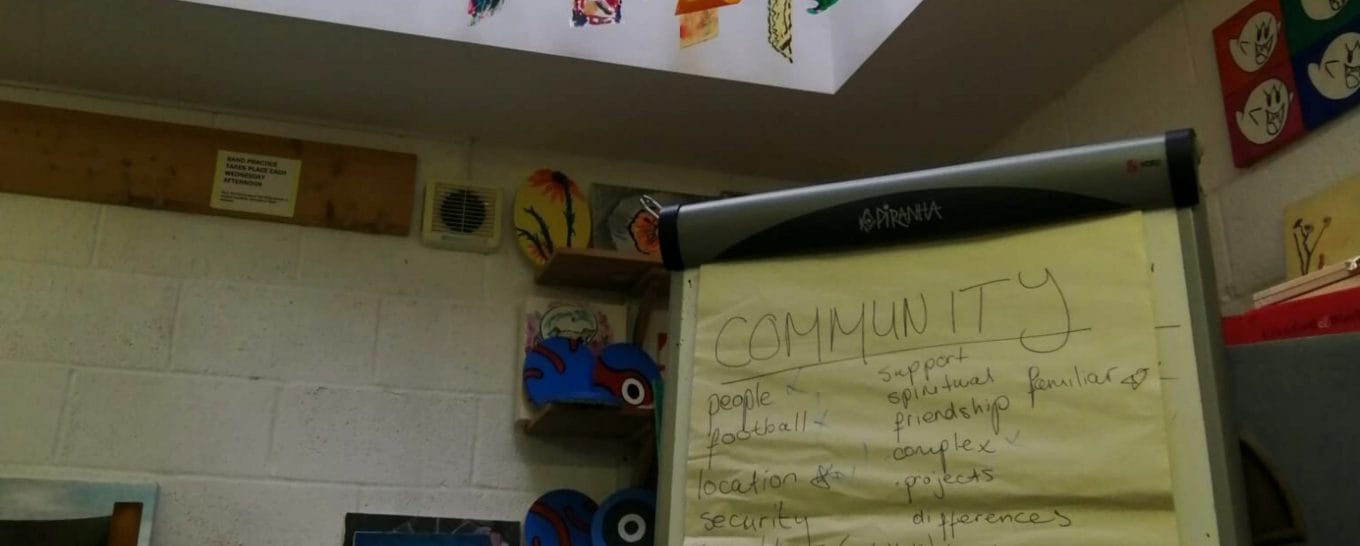 BAND PRACTICE
TAKES PLACE EACH
WEDNESDAY
AFTERNOON
NOBO
PiRANHA
COMMUNITY
people
football
location
security
support
spiritual familiar
friendship
complex
projects
differences